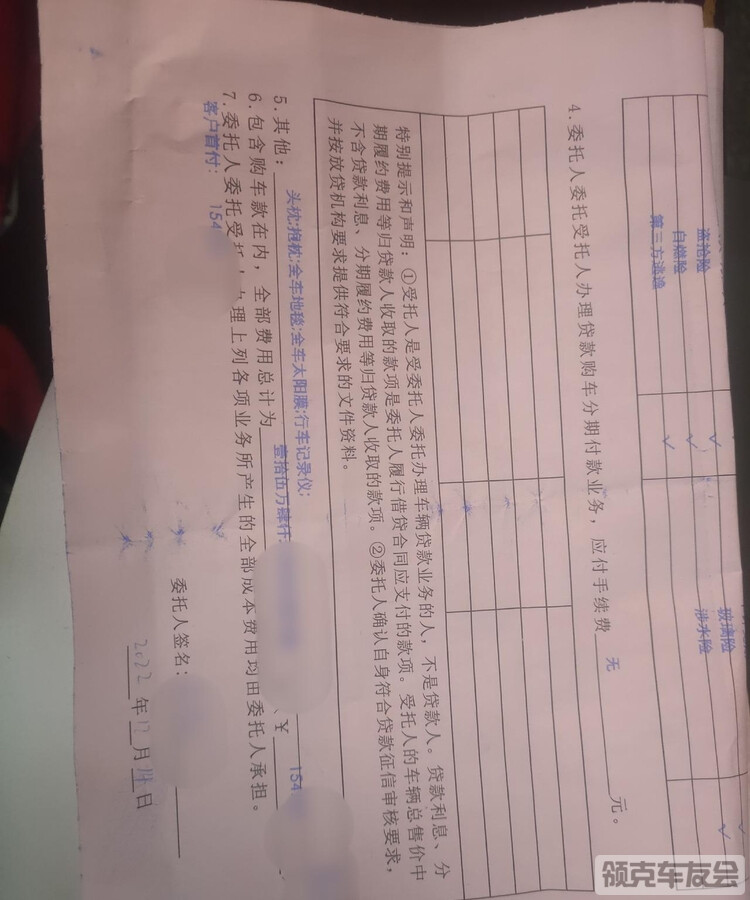 盗抢险 ✓ 玻璃险
自燃险 ✓ 涉水险 ✓
第三方逃逸 ✓
4.委托人委托受托人办理贷款购车分期付款业务，应付手续费 无 元。
特别提示和声明：①受托人是受委托人委托办理车辆贷款业务的人，不是贷款人。贷款利息、分
期履约费用等归贷款人收取的款项是委托人履行借贷合同应支付的款项。受托人的车辆总售价中
不含贷款利息、分期履约费用等归贷款人收取的款项。②委托人确认自身符合贷款征信审核要求，
并按放贷机构要求提供符合要求的文件资料。
5.其他：头枕;抱枕;全车地毯;全车太阳膜;行车记录仪;
6.包含购车款在内，全部费用总计为 壹拾伍万肆仟 、￥ 154
7.委托人委托受 理上列各项业务所产生的全部成本费用均由委托人承担。
客户首付： 154
委托人签名：
2022年12月14日
领克车友会